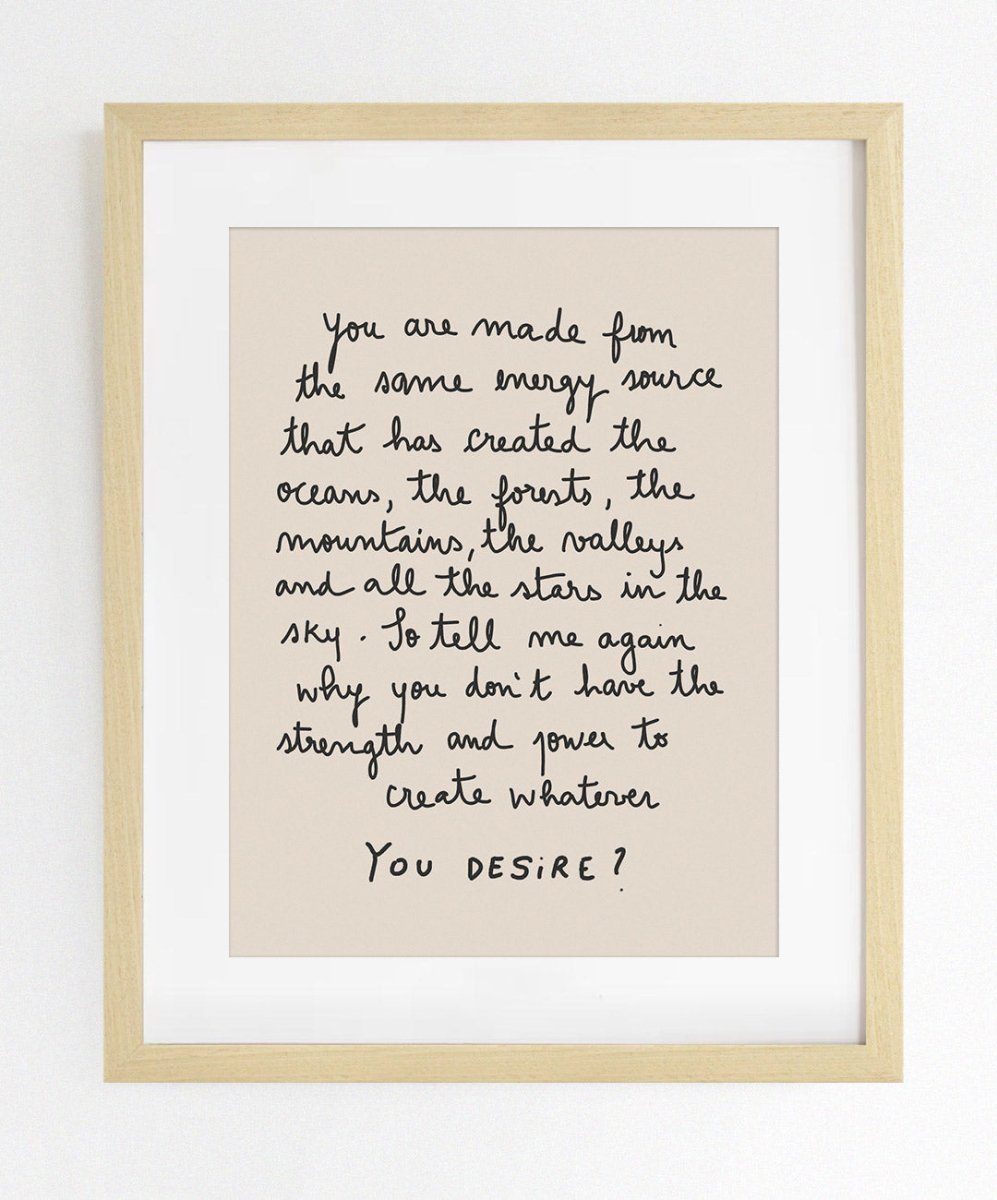 You are made from
the same energy source
that has created the
oceans, the forests, the
mountains, the valleys
and all the stars in the
sky. So tell me again
why you don't have the
strength and power to
create whatever
YOU DESiRE?